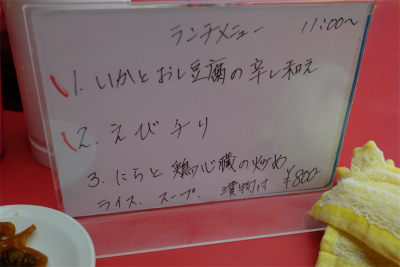 ランチメニュー 11:00〜
1. いかとおし豆腐の辛し和え
2. えびチリ
3. にらと鶏心臓の炒め
ライス. スープ. 漬物付 ¥800-